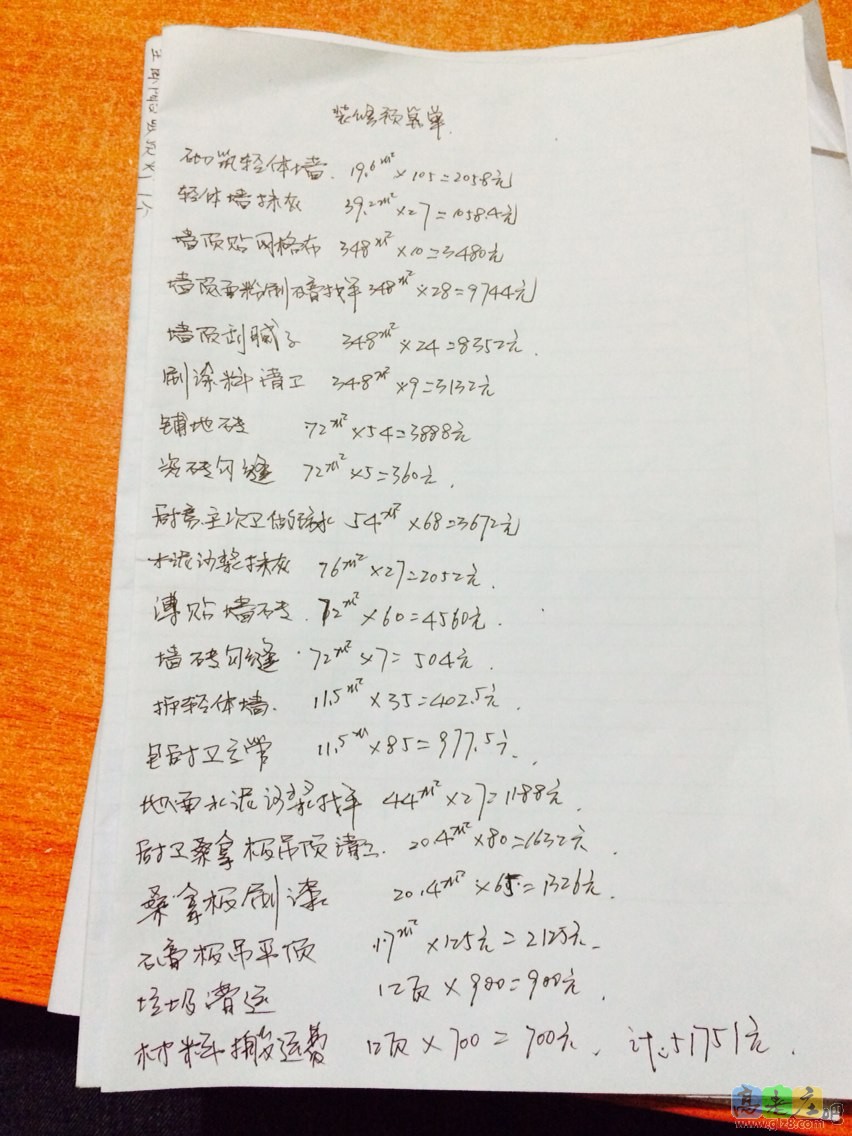 装修预算单
砌筑轻体墙. 19.6m²×105=2058元
轻体墙抹灰 39.2m²×27=1058.4元
墙顶贴网格布 348m²×10=3480元
墙顶面粉刷石膏找平 348m²×28=9744元
墙顶刮腻子 348m²×24=8352元.
刷涂料清工 348m²×9=3132元
铺地砖 72m²×54=3888元
瓷砖勾缝 72m²×5=360元.
厨房主次卫做防水 54m²×68=3672元
水泥沙浆抹灰 76m²×27=2052元.
薄贴墙砖. 72m²×60=4560元.
墙砖勾缝 72m²×7=504元.
拆轻体墙. 11.5m²×35=402.5元.
包厨卫立管 11.5m×85=977.5元.
地面水泥沙浆找平 44m²×27=1188元.
厨卫桑拿板吊顶清工. 20.4m²×80=1632元.
桑拿板刷漆 20.4m²×65=1326元.
石膏板吊平顶 17m²×125元=2125元.
垃圾清运 1项×900=900元.
材料搬运费 1项×700=700元. 计:51751元.
高老庄吧
www.glz8.com